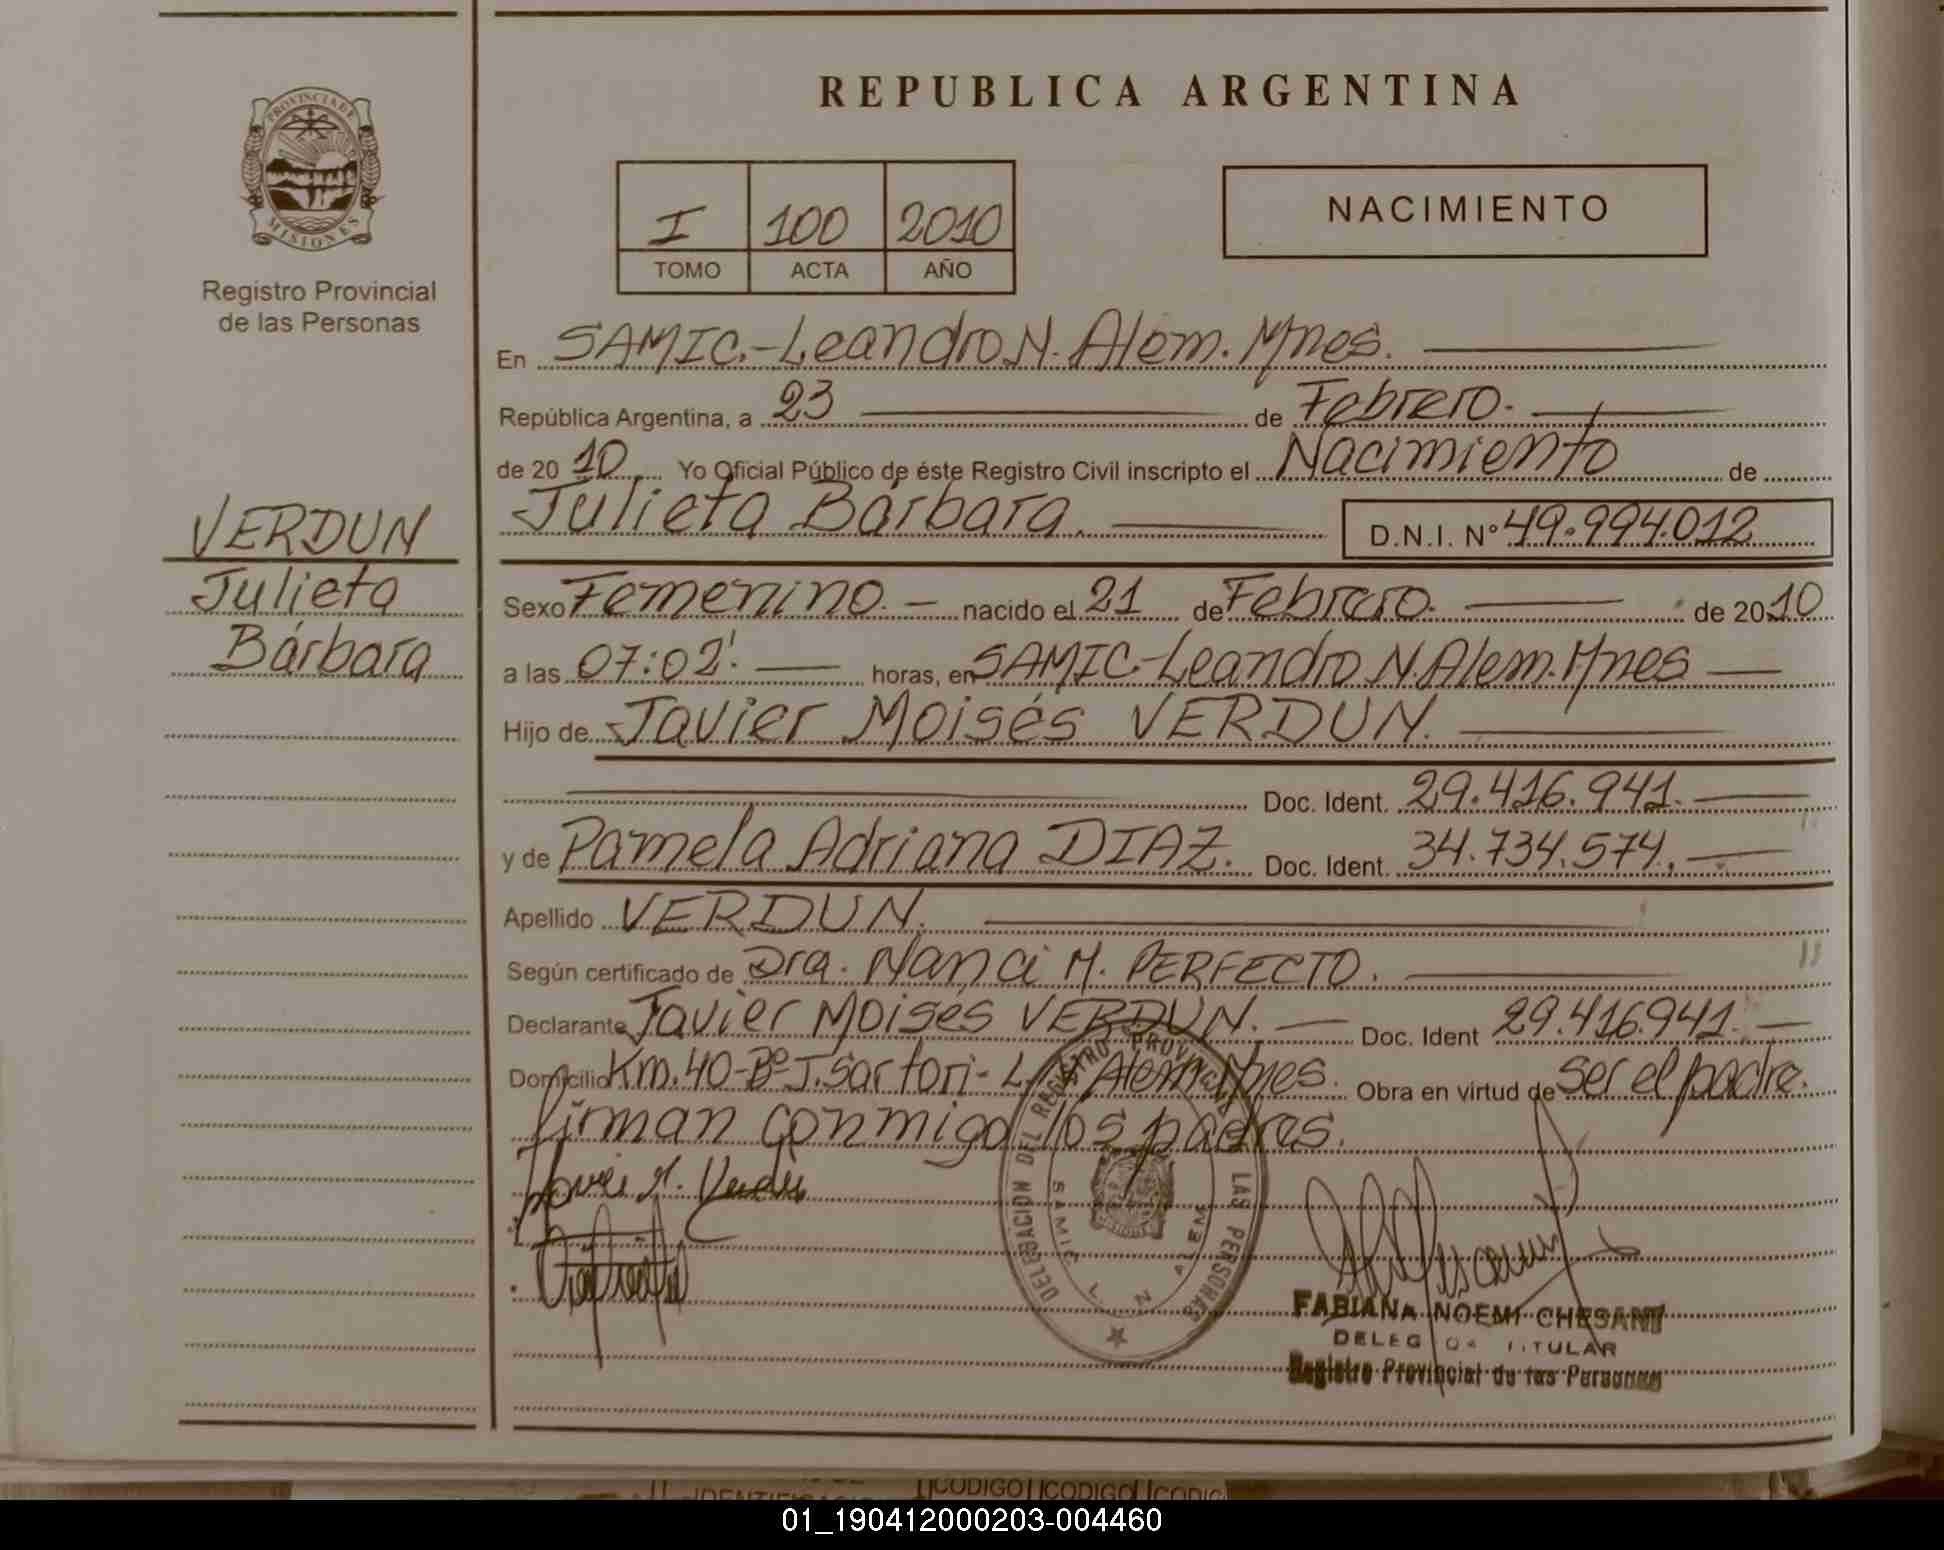 REPUBLICA ARGENTINA
PROVINCIA DE
MISIONES
Registro Provincial
de las Personas
I 100 2010
TOMO ACTA AÑO
NACIMIENTO
En SAMIC.-Leandro N. Alem. Mnes.
República Argentina, a 23 de Febrero.
de 20 10 Yo Oficial Público de éste Registro Civil inscripto el Nacimiento de
Julieta Bárbara.
D.N.I. Nº 49.994.012
VERDUN
Julieta
Bárbara
Sexo Femenino. nacido el 21 de Febrero. de 20 10
a las 07:02'. horas, en SAMIC-Leandro N. Alem. Mnes
Hijo de Javier Moisés VERDUN.
Doc. Ident. 29.416.941.
y de Pamela Adriana DIAZ. Doc. Ident. 34.734.574.
Apellido VERDUN.
Según certificado de Dra. Nanci M. PERFECTO.
Declarante Javier Moisés VERDUN. Doc. Ident 29.416.941.
Domicilio Km.40-Bº J.Sartori- L.N Alem Mnes. Obra en virtud de ser el padre.
firman conmigo los padres.
DELEGACION DEL REGISTRO PROVINCIAL LAS PERSONAS
SAMIC L. N ALEM
FABIANA NOEMI CHESANI
TITULAR
Registro Provincial de las Personas
CODIGO CODIGO
01_190412000203-004460